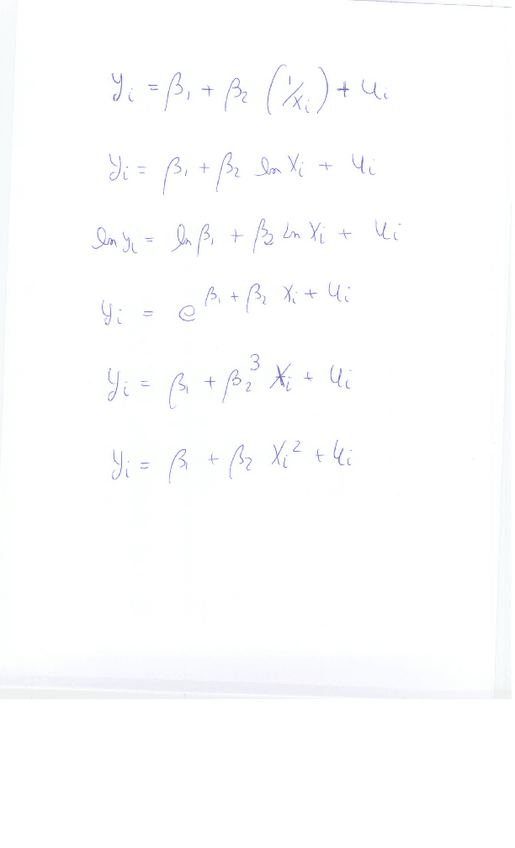 yᵢ = β₁ + β₂ (1/xᵢ) + uᵢ
yᵢ = β₁ + β₂ ln Xᵢ + uᵢ
ln yᵢ = ln β₁ + β₂ ln Xᵢ + uᵢ
yᵢ = e^(β₁ + β₂ Xᵢ + uᵢ)
yᵢ = β₁ + β₂³ Xᵢ + uᵢ
yᵢ = β₁ + β₂ Xᵢ² + uᵢ